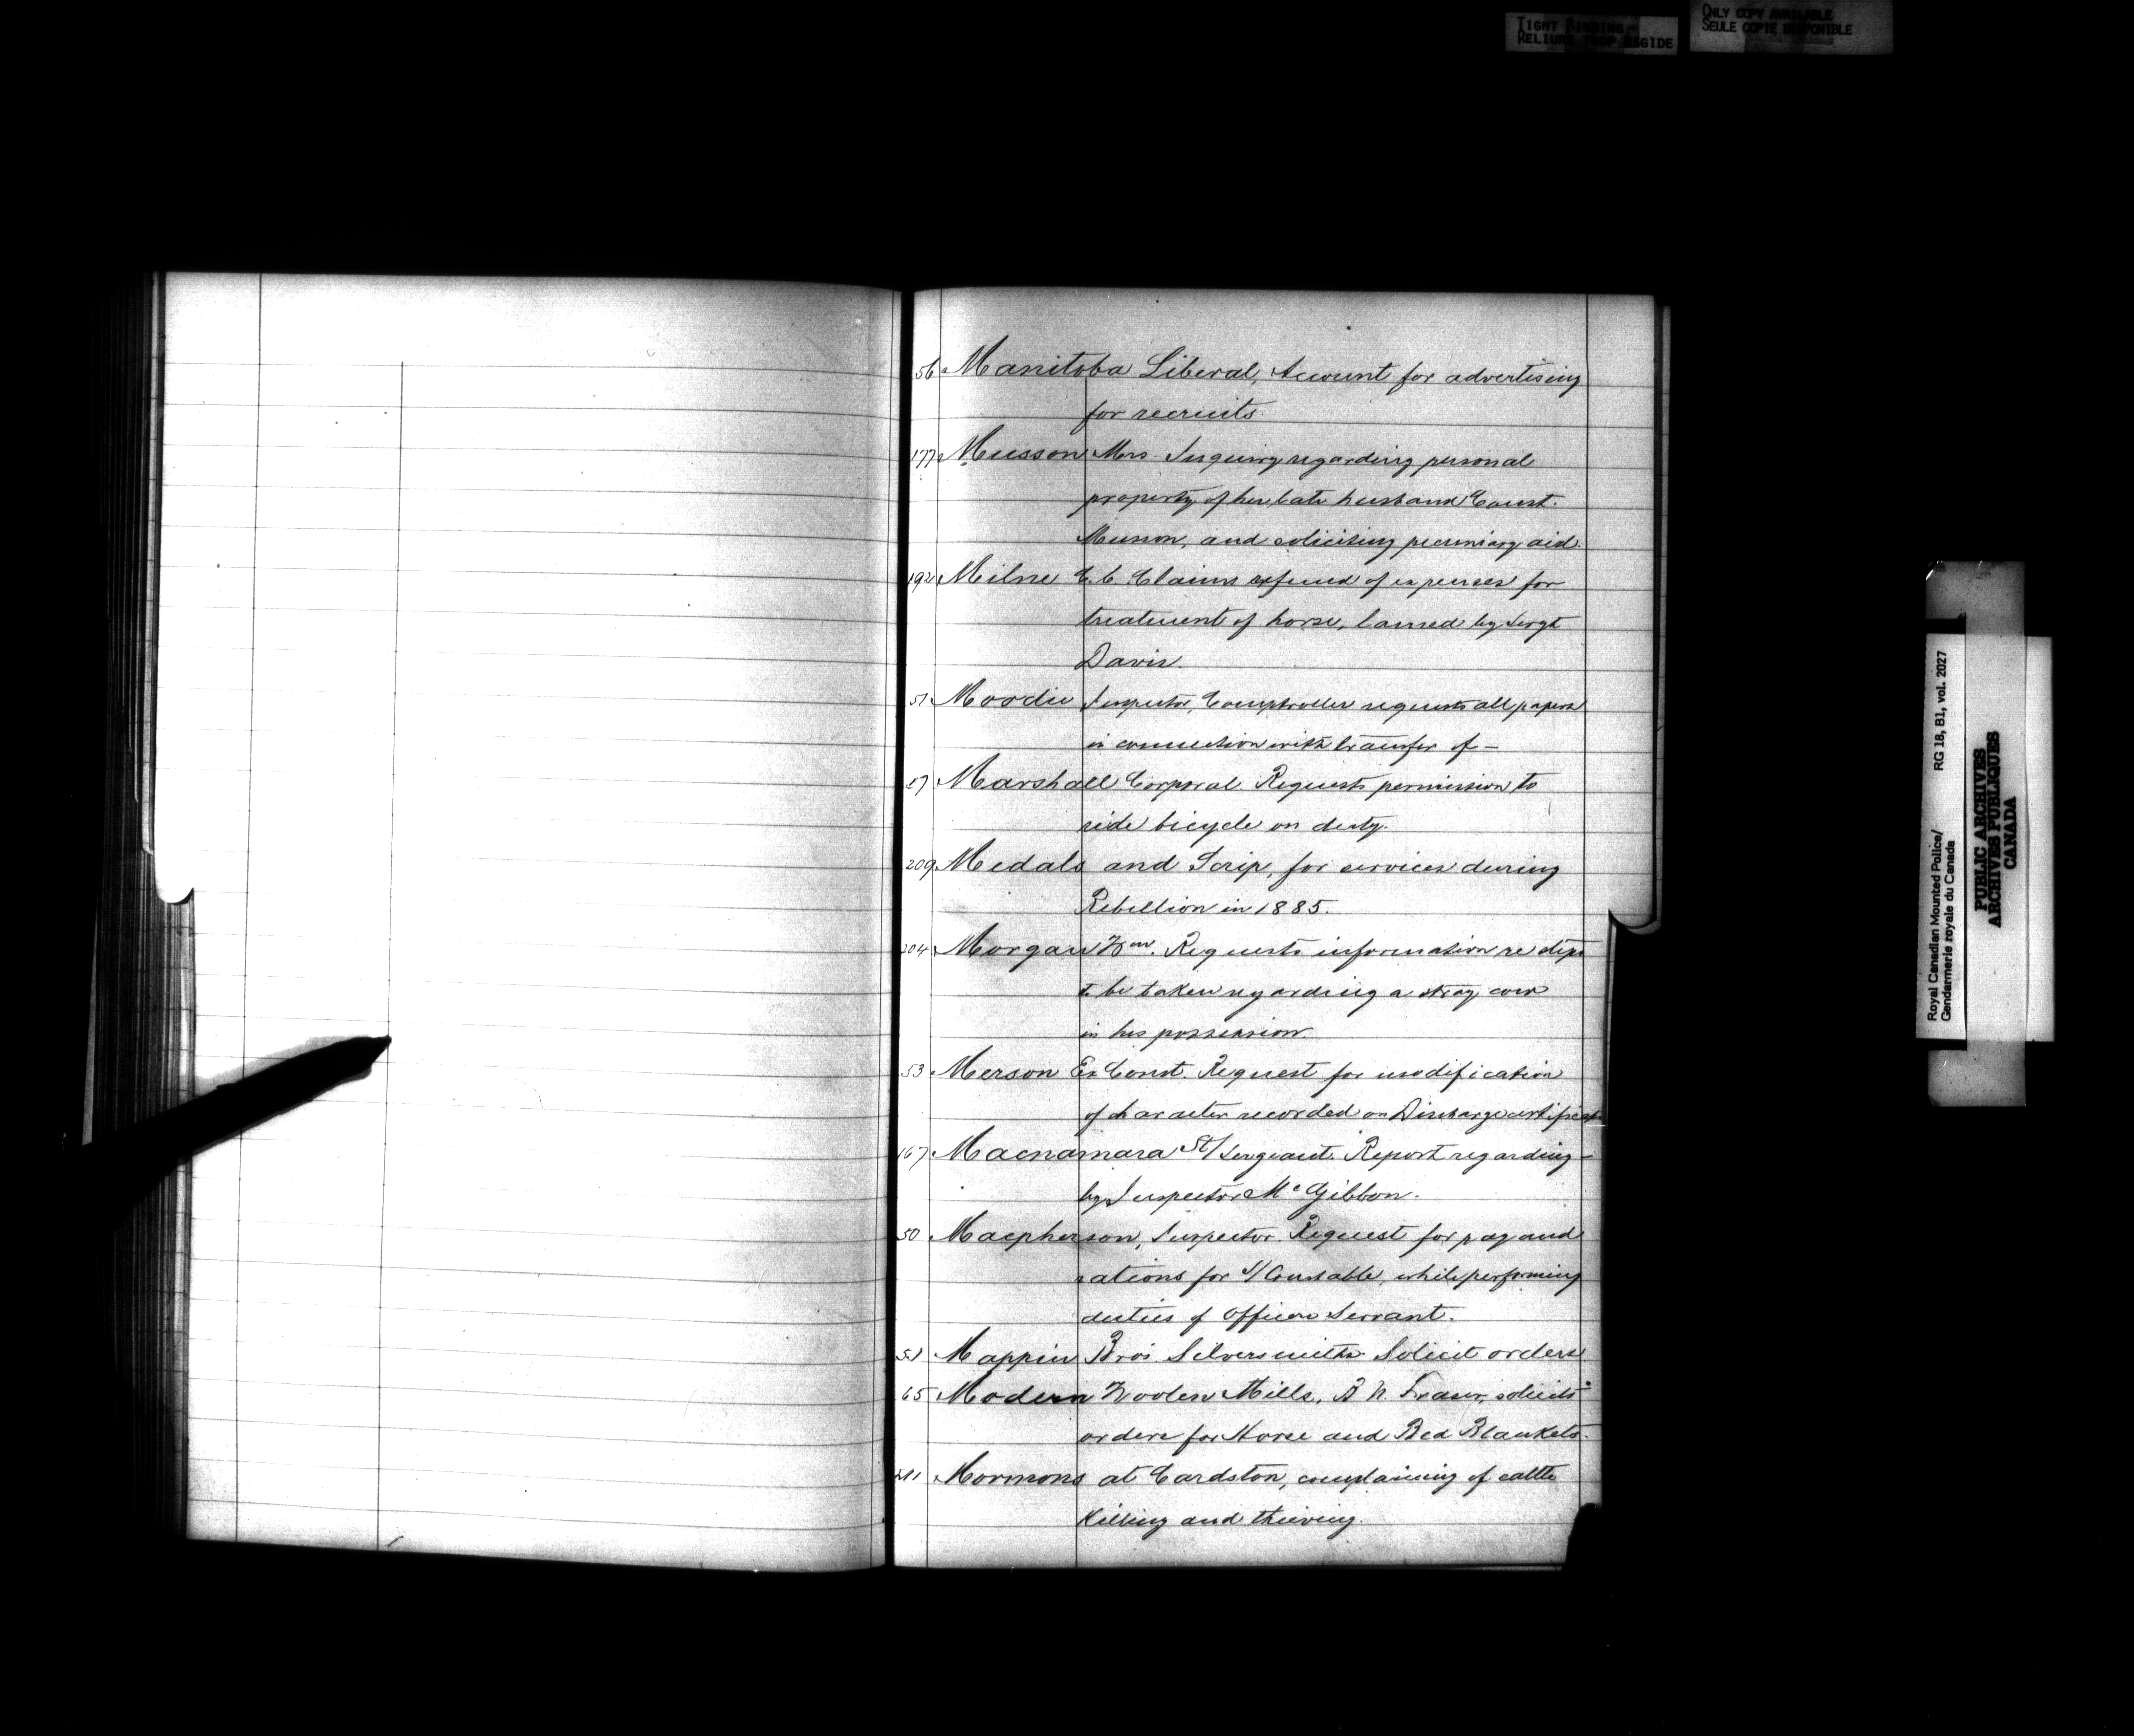 TIGHT BINDING
RELIURE TROP RIGIDE
ONLY COPY AVAILABLE
SEULE COPIE DISPONIBLE
56 Manitoba Liberal, Account for advertising
for recruits.
177 Musson Mrs. Inquiry regarding personal
property of her late husband Const.
Musson, and soliciting pecuniary aid.
192 Milne C. C. Claims refund of expenses for
treatment of horse, lamed by Sergt
Davis.
51 Moodie Inspector, Comptroller requests all papers
in connection with transfer of –
57 Marshall Corporal. Requests permission to
ride bicycle on duty.
209 Medals and Scrip, for services during
Rebellion in 1885.
204 Morgan Wm. Requests information re steps
to be taken regarding a stray cow
in his possession.
53 Merson Ex Const. Request for modification
of character recorded on Discharge certificate
167 Macnamara St/Sergeant. Report regarding –
by Inspector McGibbon.
50 Macpherson, Inspector. Request for pay and
rations for S/Constable, while performing
duties of Officers Servant.
51 Mappin Bros. Silversmiths. Solicit orders
65 Modern Woolen Mills, B N. Fraser, solicits
orders for Horse and Bed Blankets.
211 Mormons at Cardston, complaining of cattle
Killing and thieving.
Royal Canadian Mounted Police/
Gendarmerie royale du Canada
RG 18, B1, vol. 2027
PUBLIC ARCHIVES
ARCHIVES PUBLIQUES
CANADA